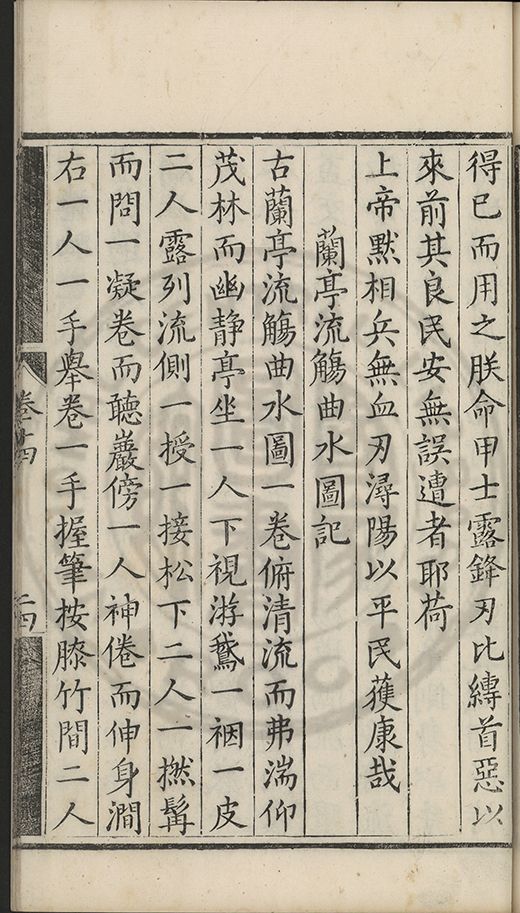 得已而用之朕命甲士露鋒刃比縛首惡以
來前其良民安無誤遭者耶荷
上帝默相兵無血刃潯陽以平民獲康哉
蘭亭流觴曲水圖記
古蘭亭流觴曲水圖一卷俯清流而弗湍仰
茂林而幽静亭坐一人下視游鵞一裀一皮
二人露列流側一授一接松下二人一撚髯
而問一凝卷而聽巖傍一人神倦而伸身澗
右一人一手舉卷一手握筆按膝竹間二人
卷十四
二四